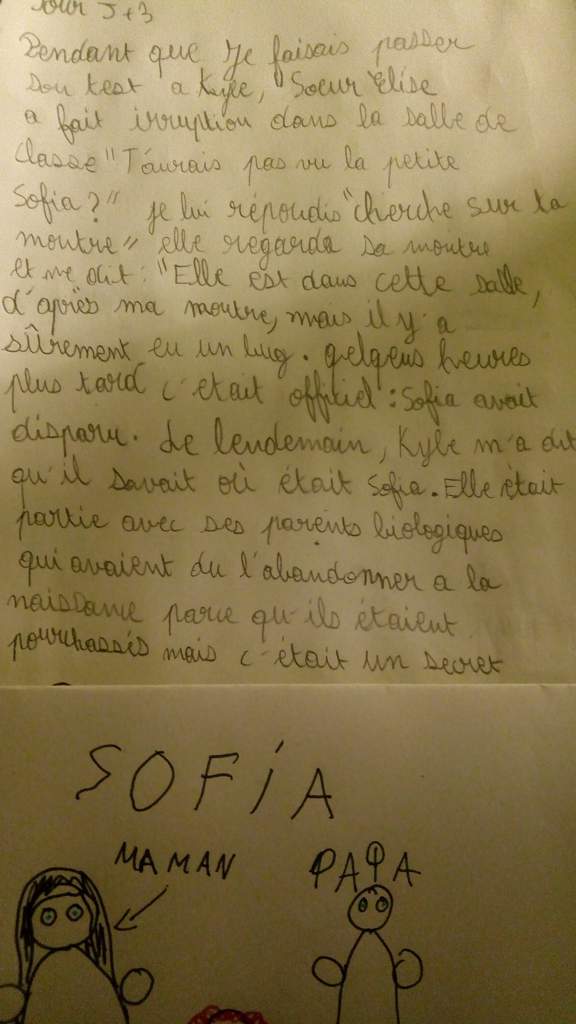 Jour J+3
Pendant que Je faisais passer
son test a Kyle, Soeur Elise
a fait irruption dans la salle de
classe "T'aurais pas vu la petite
Sofia?" je lui répondis "cherche sur ta
montre" elle regarda sa montre
et me dit : "Elle est dans cette salle,
d'après ma montre, mais il y a
sûrement eu un bug. qelqeus heures
plus tard c'était officiel : Sofia avait
disparu. Le lendemain, Kyle m'a dit
qu'il savait où était Sofia. Elle était
partie avec ses parents biologiques
qui avaient du l'abandonner a la
naissance parce qu'ils étaient
pourchassés mais c'était un secret
SOFiA
MAMAN PAPA